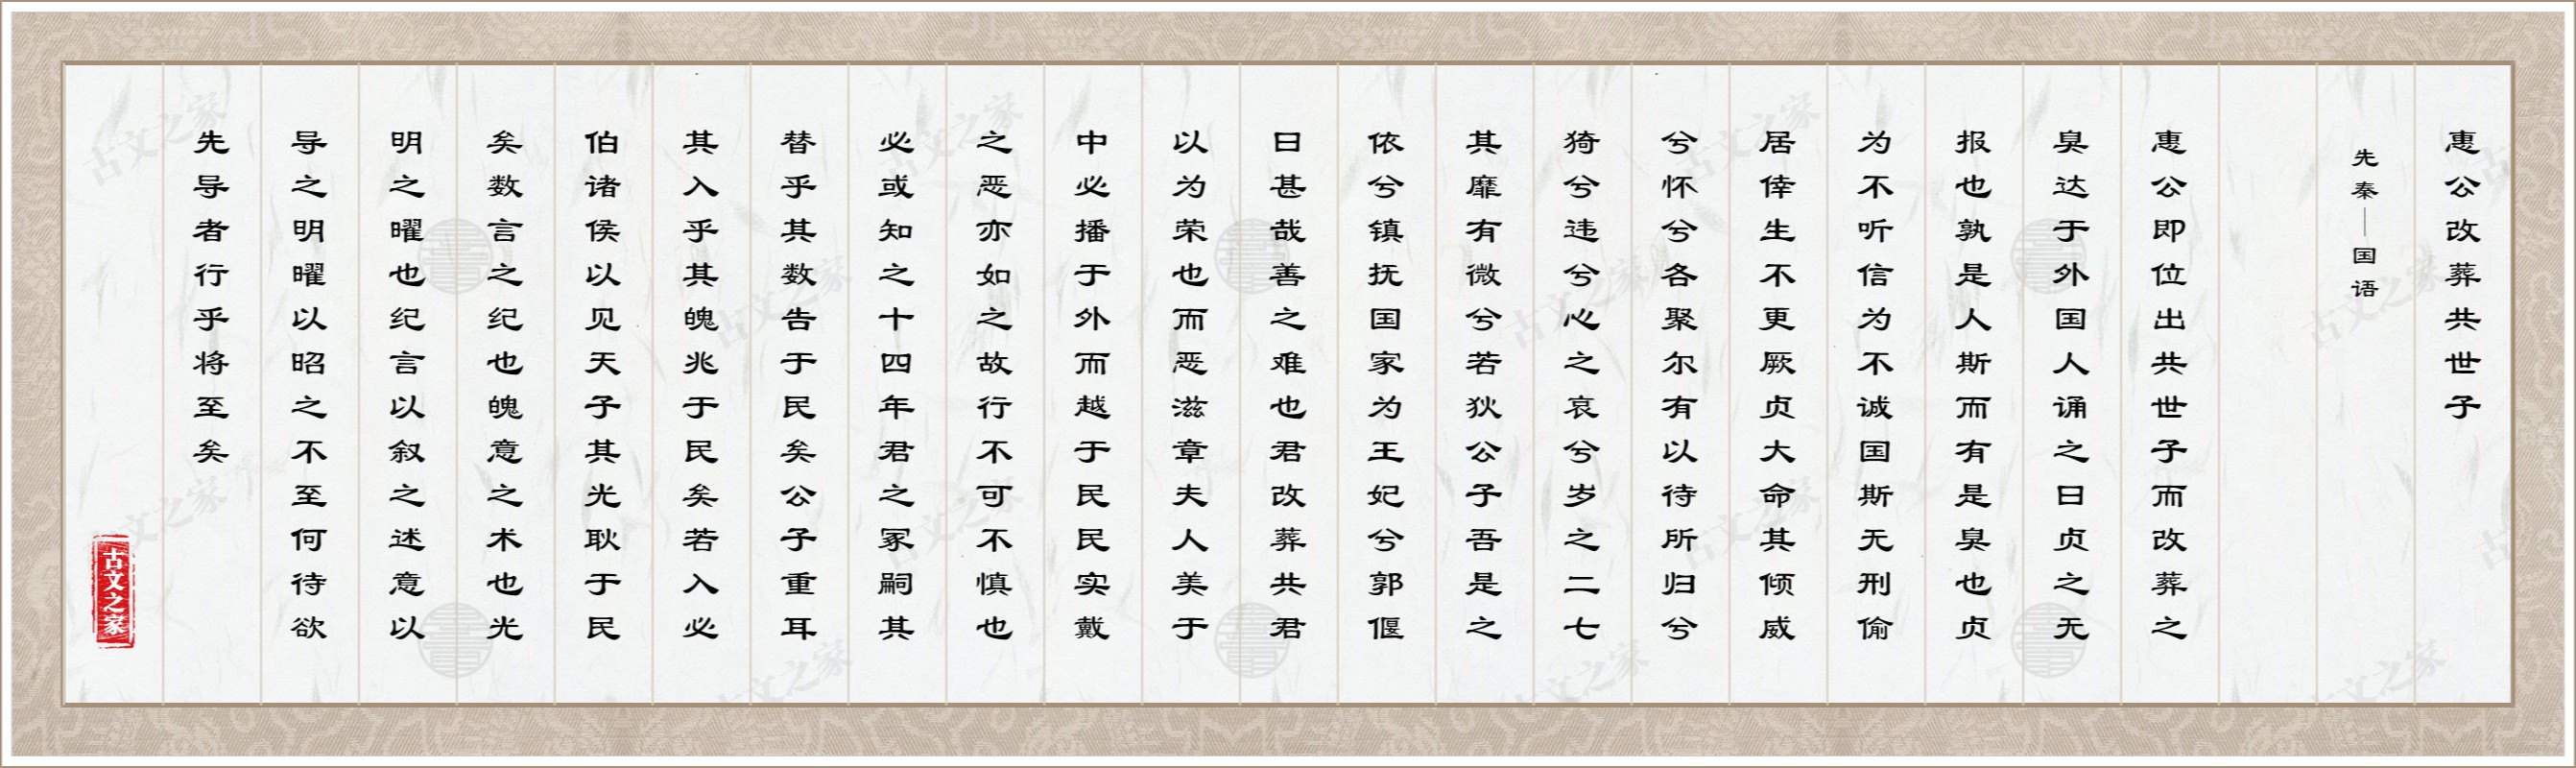 惠公改葬共世子
先秦—国语
惠公即位出共世子而改葬之
臭达于外国人诵之曰贞之无
报也孰是人斯而有是臭也贞
为不听信为不诚国斯无刑偷
居倖生不更厥贞大命其倾威
兮怀兮各聚尔有以待所归兮
猗兮违兮心之哀兮岁之二七
其靡有微兮若狄公子吾是之
依兮镇抚国家为王妃兮郭偃
曰甚哉善之难也君改葬共君
以为荣也而恶滋章夫人美于
中必播于外而越于民民实戴
之恶亦如之故行不可不慎也
必或知之十四年君之冢嗣其
替乎其数告于民矣公子重耳
其入乎其魄兆于民矣若入必
伯诸侯以见天子其光耿于民
矣数言之纪也魄意之术也光
明之曜也纪言以叙之述意以
导之明曜以昭之不至何待欲
先导者行乎将至矣
古文之家